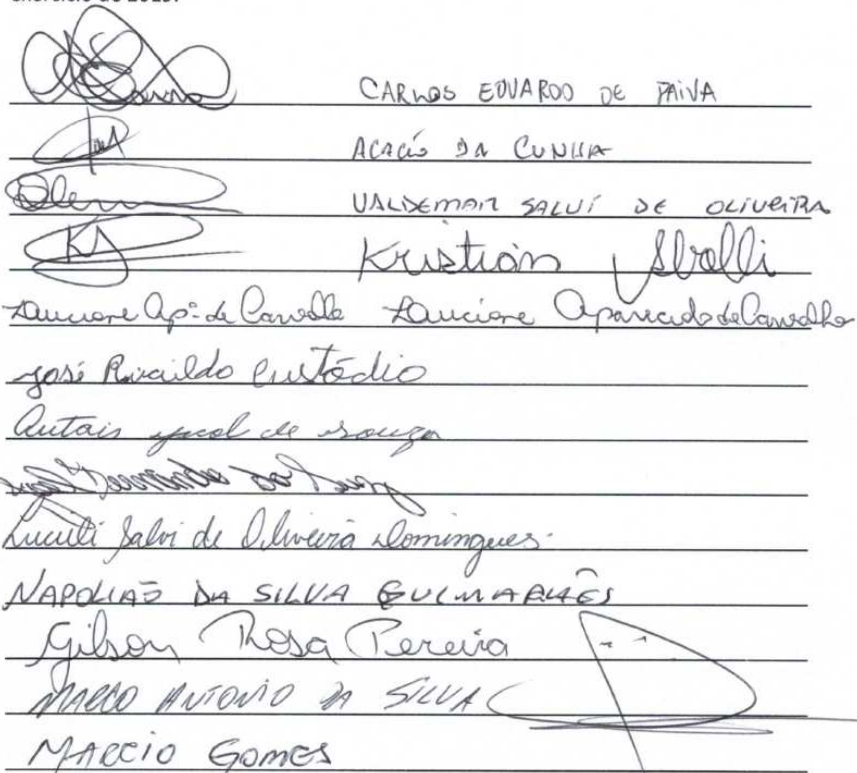 exercício de
CARLOS EDUARDO DE PAIVA
ACACIO DA CUNHA
VALDEMAR SALVI DE OLIVEIRA
Kristian
Lauciane Ap. de Carvalho Lauciane Aparecida de Carvalho
José Rivaildo Custódio
de souza
Fernando da
Luceli Salvi de Oliveira Domingues
NAPOLIAO DA SILVA GUIMARAES
Gilson Rosa Pereira
MARCO ANTONIO DA SILVA
MARCIO GOMES